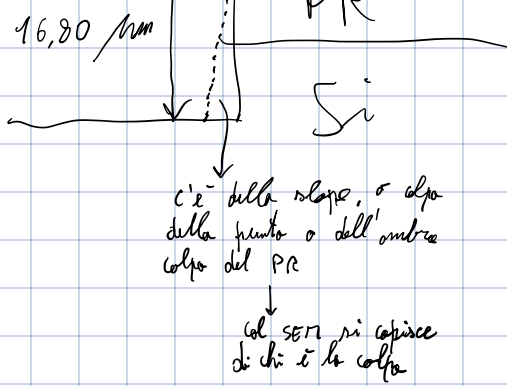 PR
16,80 µm
Si
c'è della slope, o colpa
della punta o dell'ombra
colpa del PR
col SEM si capisce
di chi è la colpa